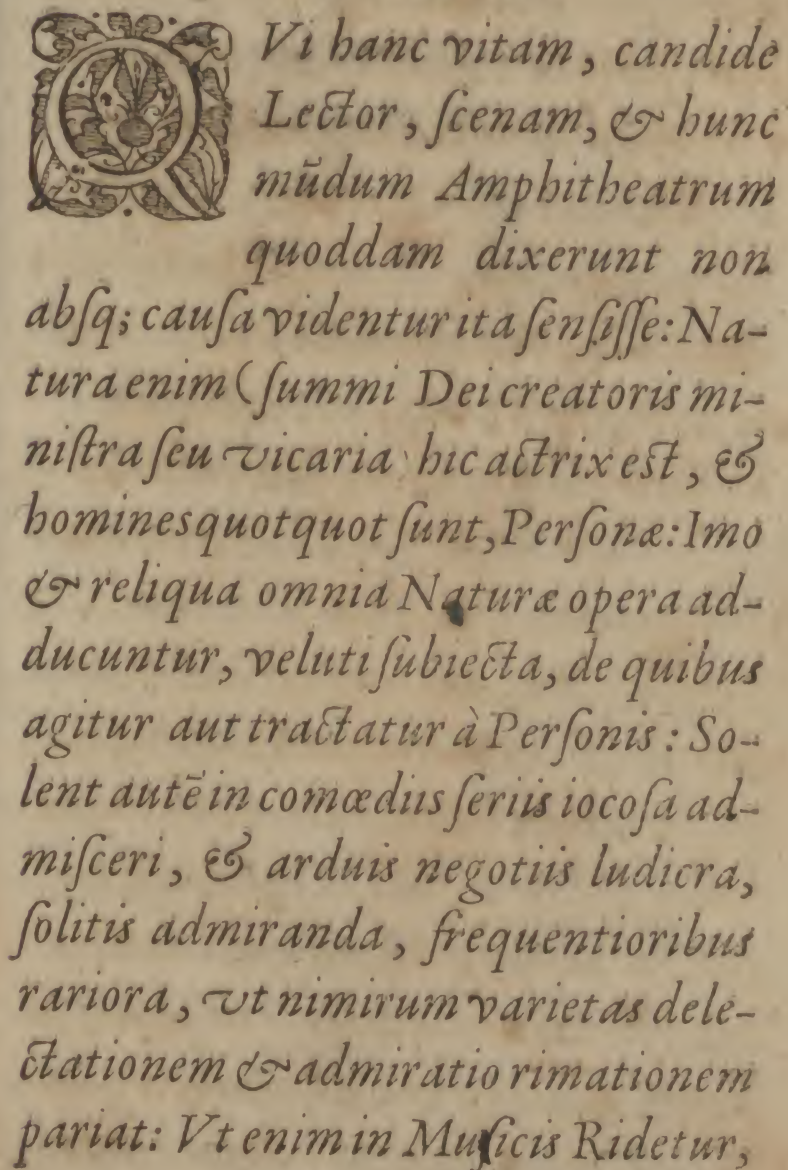 QVi hanc vitam, candide
Lector, ſcenam, & hunc
mūdum Amphitheatrum
quoddam dixerunt non
abſq; cauſa videntur ita ſenſiſſe: Na-
tura enim (ſummi Dei creatoris mi-
niſtra ſeu vicaria hic actrix eſt, &
homines quotquot ſunt, Perſonæ: Imo
& reliqua omnia Naturæ opera ad-
ducuntur, veluti ſubiecta, de quibus
agitur aut tractatur à Perſonis: So-
lent autē in comœdiis ſeriis iocoſa ad-
miſceri, & arduis negotiis ludicra,
ſolitis admiranda, frequentioribus
rariora, vt nimirum varietas dele-
ctationem & admiratio rimationem
pariat: Vt enim in Muſicis Ridetur,